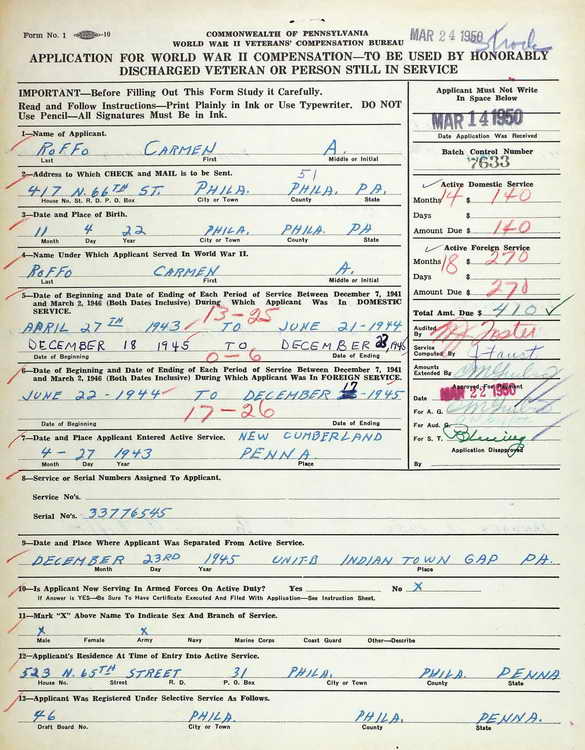 Form No. 1
10
COMMONWEALTH OF PENNSYLVANIA
WORLD WAR II VETERANS' COMPENSATION BUREAU
MAR 24 1950
APPLICATION FOR WORLD WAR II COMPENSATION—TO BE USED BY HONORABLY
DISCHARGED VETERAN OR PERSON STILL IN SERVICE
IMPORTANT—Before Filling Out This Form Study it Carefully.
Read and Follow Instructions—Print Plainly in Ink or Use Typewriter. DO NOT
Use Pencil—All Signatures Must be in Ink.
1—Name of Applicant.
ROFFO CARMEN A.
Last First Middle or Initial
2—Address to Which CHECK and MAIL is to be Sent.
51
417 N. 66TH ST. PHILA. PHILA. PA.
House No. St. R. D. P. O. Box City or Town County State
3—Date and Place of Birth.
11 4 22 PHILA. PHILA. PA
Month Day Year City or Town County State
4—Name Under Which Applicant Served In World War II.
ROFFO CARMEN A.
Last First Middle or Initial
5—Date of Beginning and Date of Ending of Each Period of Service Between December 7, 1941
and March 2, 1946 (Both Dates Inclusive) During Which Applicant Was In DOMESTIC
SERVICE.
13-25
APRIL 27TH 1943 TO JUNE 21-1944
DECEMBER 18 1945 TO DECEMBER 23, 1945
Date of Beginning 0-6 Date of Ending
6—Date of Beginning and Date of Ending of Each Period of Service Between December 7, 1941
and March 2, 1946 (Both Dates Inclusive) During Which Applicant Was In FOREIGN SERVICE.
JUNE 22-1944 TO DECEMBER 17-1945
17-26
Date of Beginning Date of Ending
7—Date and Place Applicant Entered Active Service. NEW CUMBERLAND
4-27 1943 PENNA.
Month Day Year Place
8—Service or Serial Numbers Assigned To Applicant.
Service No's.
Serial No's. 33776545
9—Date and Place Where Applicant Was Separated From Active Service.
DECEMBER 23RD 1945 UNIT-B INDIAN TOWN GAP PA.
Month Day Year Place
10—Is Applicant Now Serving In Armed Forces On Active Duty? Yes No X
If Answer is YES—Be Sure To Have Certificate Executed And Filed With Application—See Instruction Sheet.
11—Mark "X" Above Name To Indicate Sex And Branch of Service.
X X
Male Female Army Navy Marine Corps Coast Guard Other—Describe
12—Applicant's Residence At Time of Entry Into Active Service.
523 N. 65TH STREET 31 PHILA. PHILA. PENNA
House No. Street R. D. P. O. Box City or Town County State
13—Applicant Was Registered Under Selective Service As Follows.
46 PHILA. PHILA. PENNA.
Draft Board No. City or Town County State
Applicant Must Not Write
In Space Below
MAR 14 1950
Date Application Was Received
Batch Control Number
7633
Active Domestic Service
Months 14 $ 140
Days $
Amount Due $ 140
Active Foreign Service
Months 18 $ 270
Days $
Amount Due $ 270
Total Amt. Due $ 410
Audited By
Service Computed By
Amounts Extended By
Approved For Payment
Date MAR 22 1950
For A. G.
For Aud. G.
For S. T.
Application Disapproved
By